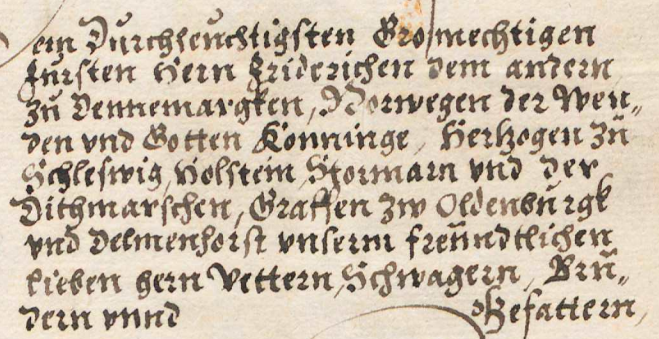 em Durchleuchtigsten Grosmechtigen
Fursten Hern Friderichen dem andern
zu Dennemargken, Norwegen der Wen„
den vnd Gotten Konninge, Hertzogen zu
Schleswig, Holstein, Stormarn vnd der
Dithmarschen, Graffen zw Oldenburgk
vnd Delmenhorst vnserm freundtlichen
lieben hern Vettern, Schwagern, Bru„
dern vnnd Gefattern,